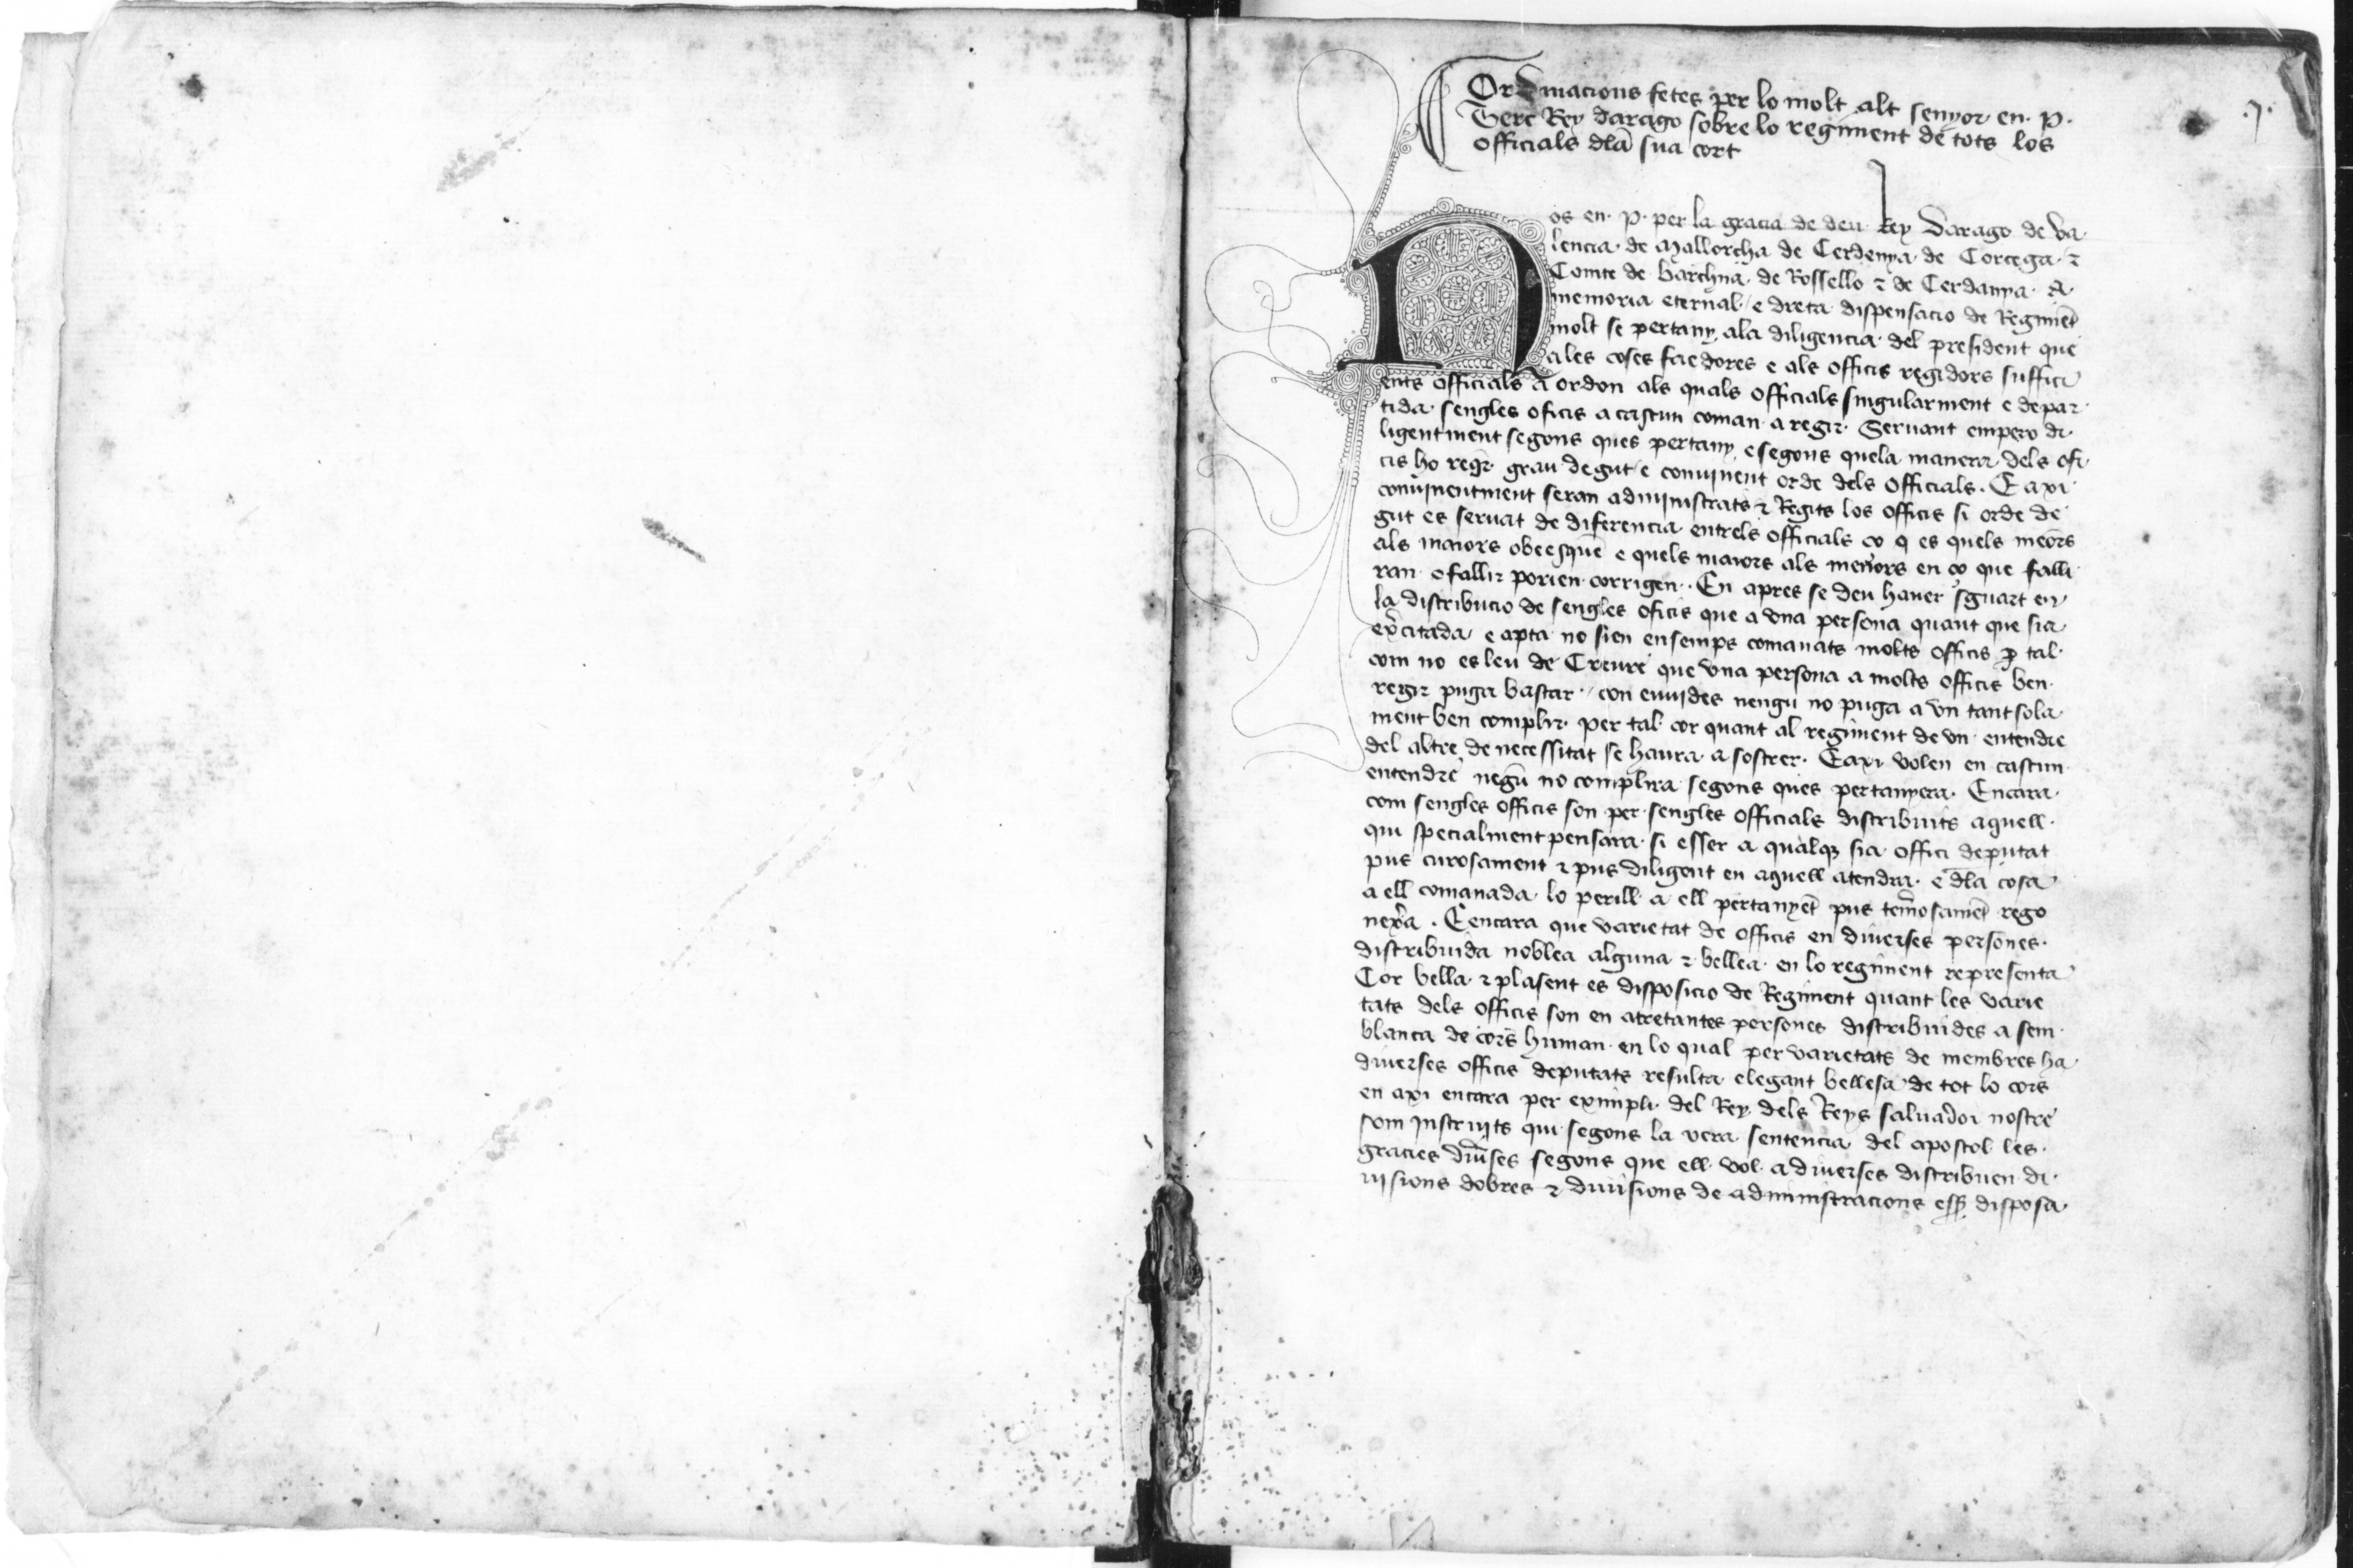 .j.
Ordinacions fetes per lo molt alt senyor en .p.
Terc Rey darago sobre lo regiment de tots los
officials dla sua cort
Nos en .p. per la gracia de deu Rey Darago de Va
lencia de Mallorcha de Cerdenya de Corcega ⁊
Comte de barchna de Rossello ⁊ de Cerdanya A
memoria eternal / e dreta dispensacio de Regimēt
molt se pertany ala diligencia del president que
ales coses faedores e als officis regidors suffici
ents officials a ordon als quals officials singularment e depar
tida sengles oficis a cascun coman a regir. Seruant empero di
ligentment segons ques pertany e segons quela manera dels ofi
cis ho reqr̄ grau degut e conuinent orde dels officials. E axi
conuinentment seran administrats ⁊ Regits los officis si orde de
gut es seruat de diferencia entrels officials co q es quels meōrs
als maiors obeesquē e quels maiors als menors en co que falli
ran o fallir porien corrigen. En apres se deu hauer sguart en
la distribucio de sengles oficis que a vna persona quant que sia
exc̄itada e apta no sien ensemps comanats molts officis ꝑ tal
com no es leu de Creure que vna persona a molts officis ben
regir puga bastar / con enuides nengu no puga a vn tant sola
ment ben complir per tal cor quant al regiment de vn entendre
del altre de necessitat se haura a sostrer. E axi volen en cascun
entendre negū no complira segons ques pertanyera. Encara
com sengles officis son per sengles officials distribuits aquell
qui specialment pensara si esser a qualqꝫ sia offici deputat
pus curosament ⁊ pus diligent en aquell atendra e dla cosa
a ell comanada lo perill a ell pertanyēt pus tem̄osamēt rego
nexa. E encara que varietat de officis en diuerses persones
distribuida noblea alguna ⁊ bellea en lo regiment representa
Cor bella ⁊ plasent es disposicio de Regiment quant les varie
tats dels officis son en atretantes persones distribuides a sem
blanca de cors human en lo qual per varietats de membres ha
diuerses officis deputats resulta elegant bellesa de tot lo cors
en axi encara per eximpli del Rey dels Reys saluador nostre
som Instruits qui segons la vera sentencia del apostol les
gracies diūses segons que ell vol a diuerses distribuen di
uisions dobres ⁊ diuisions de administracions disposa